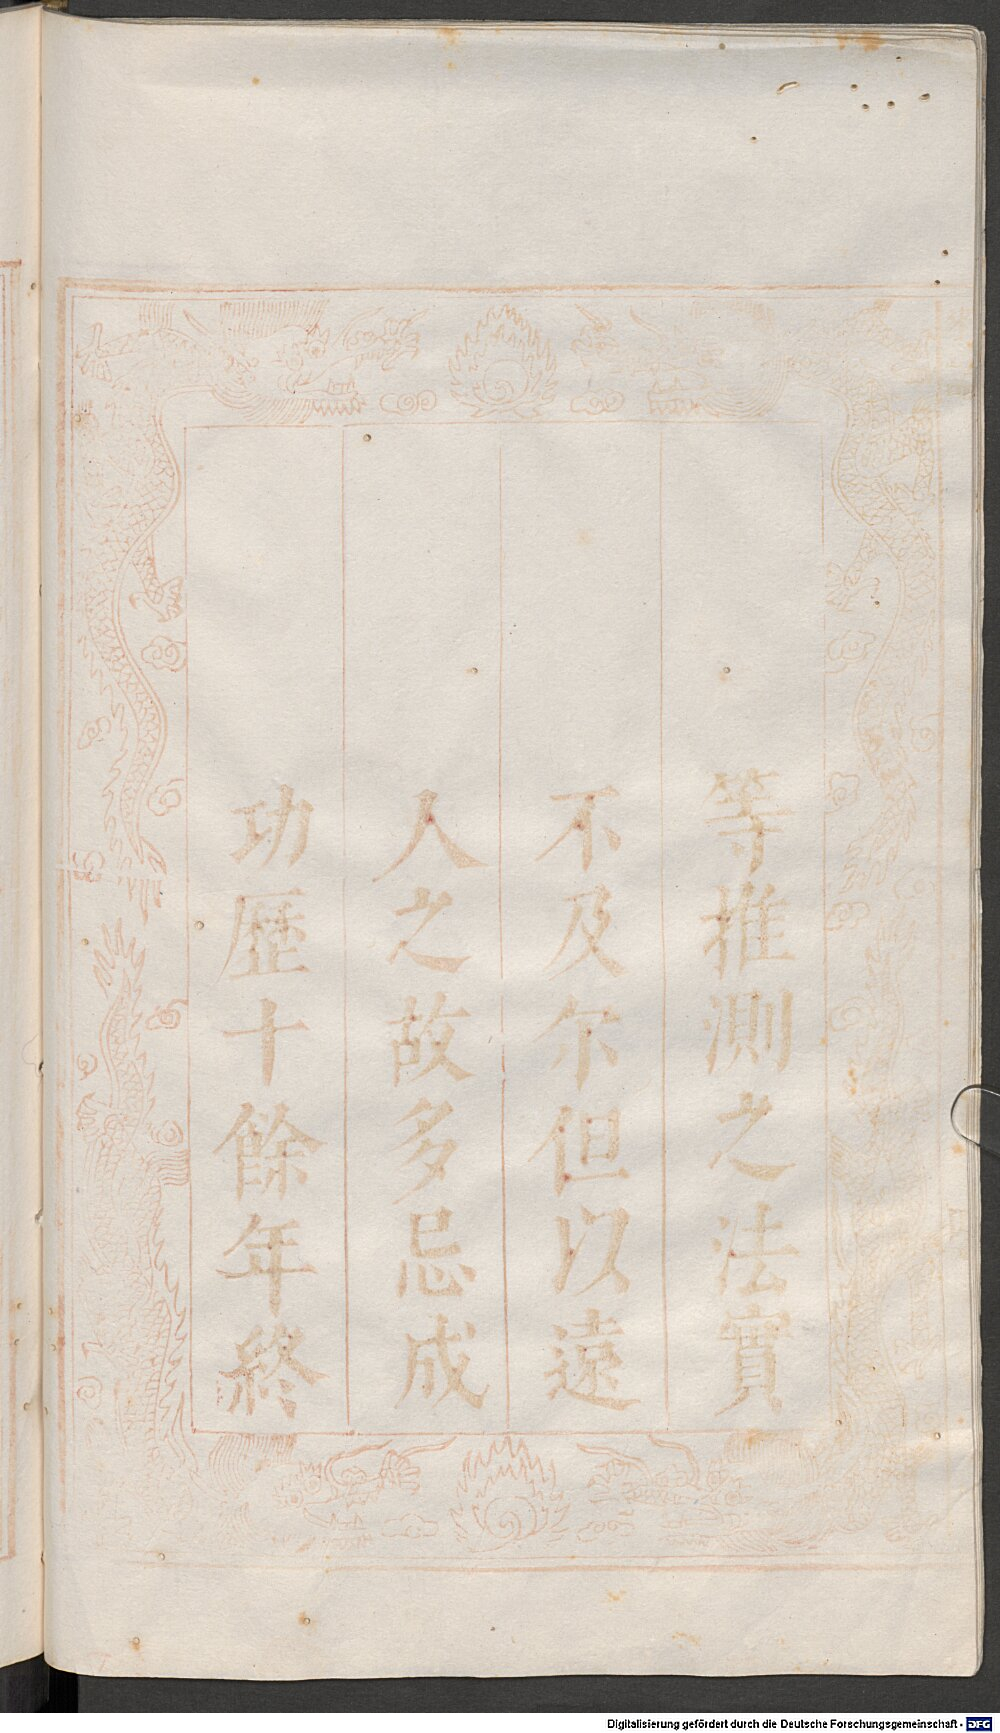 等推測之法實
不及尔但以遠
人之故多忌成
功歷十餘年終
Digitalisierung gefördert durch die Deutsche Forschungsgemeinschaft - DFG